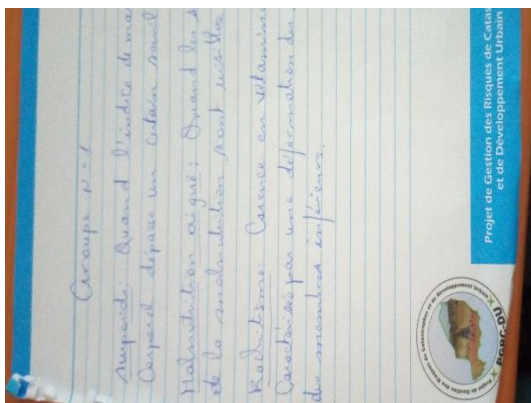 Groupe N° 1
Surpoids: Quand l'indice de mas
Corporel dépasse un certain seuil
Malnutrition aiguë: Quand les s
de la malnutrition sont visibles
Rachitisme: Carence en vitamine
Caractérisé par une déformation du
des membres inférieurs.
Projet de Gestion des Risques de Catas
et de Développement Urbain
Projet de Gestion des Risques de Catastrophes et de Développement Urbain
PGRC-DU